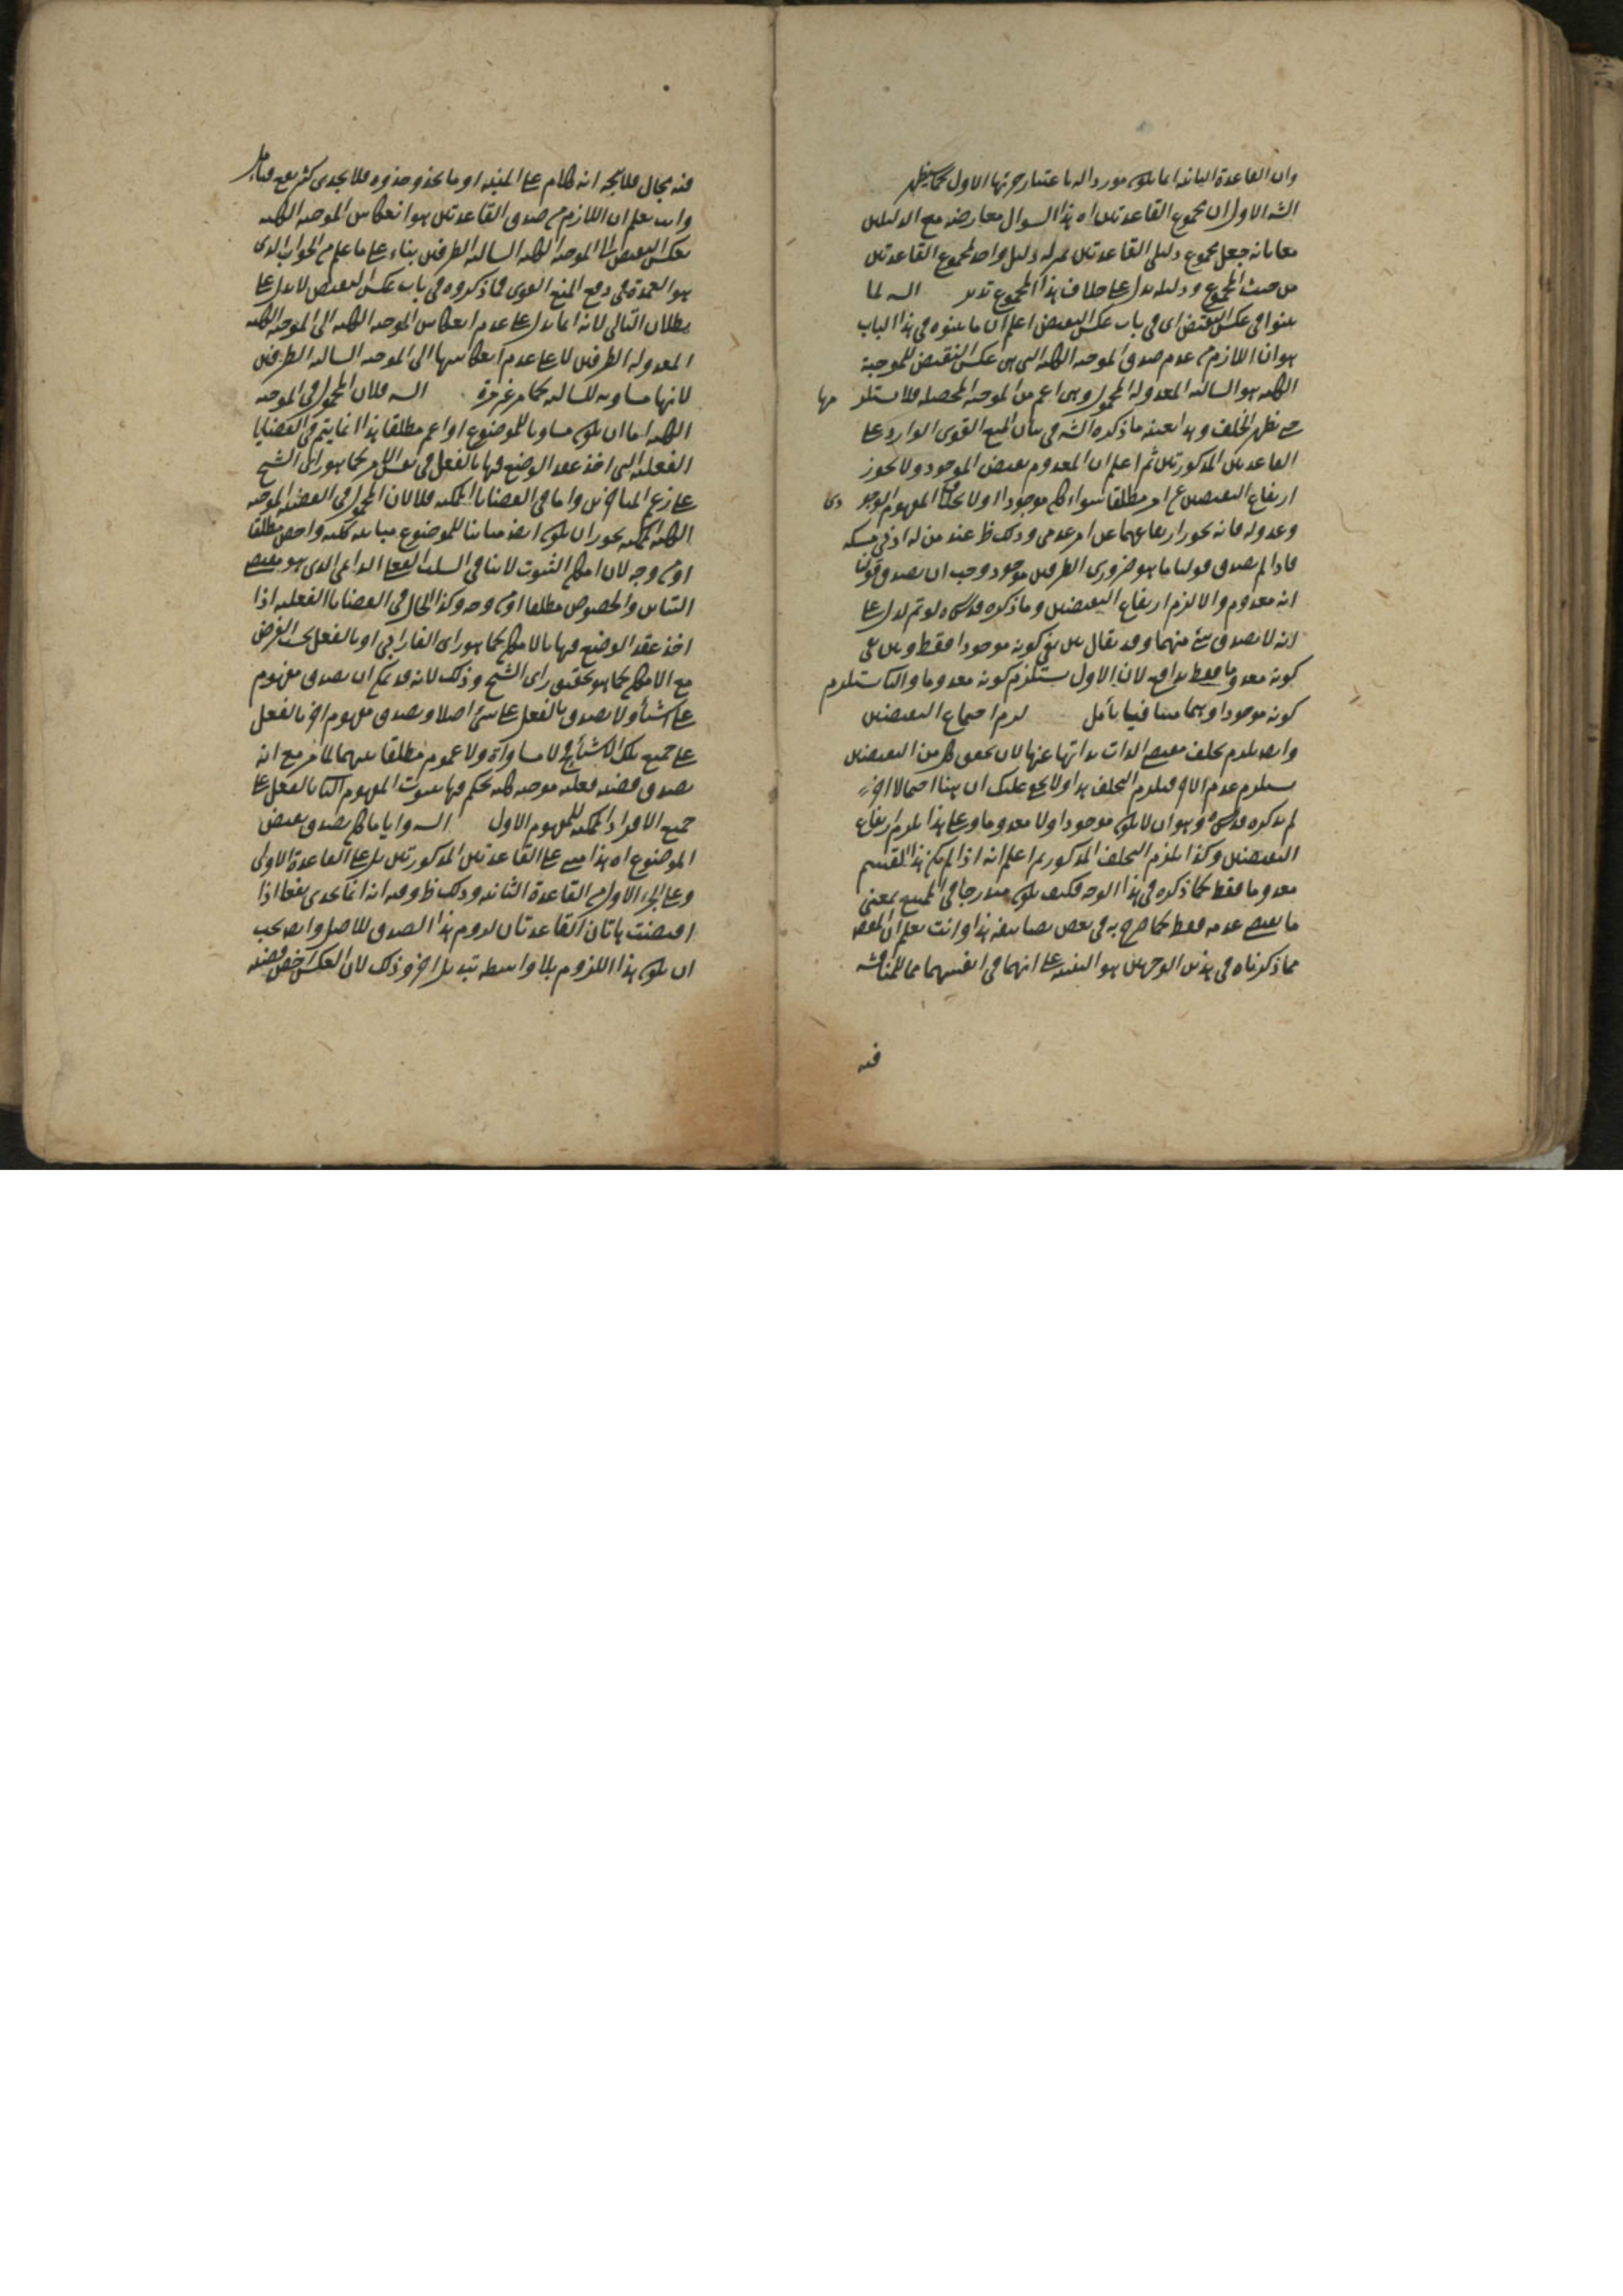 وان القاعدة الثانية انما يكون مورد اله باعتبار جزئها الاول كما سيظهر
الشه الاول ان مجموع القاعدتين اه هذا السوال معارضه مع الدليلين
معا بانه جعل مجموع دليلى القاعدتين بمنزلة دليل واحد لمجموع القاعدتين
من حيث المجموع ودليله يدل على خلاف هذا المجموع تدبر الشه لما
بينوا فى عكس النقيض اى فى باب عكس النقيض اعلم ان ما بينوه فى هذا الباب
هو ان اللازم من عدم صدق الموجبه الكليه التى هى عكس النقيض للموجبة
الكليه هو السالبه المعدوله المحمول وهى اعم من الموجبه المحصله فلا يستلزمها
حتى يظهر الخلف وهذا بعينه ما ذكره الشه فى بيان المنع القوى الوارد على
القاعدتين المذكورتين ثم اعلم ان المعدوم نقيض الموجود ولا يجوز
ارتفاع النقيضين عن امر مطلقا سواء كان موجودا اولا بخلاف المفهوم الوجودى
وعدوله فانه يجوز ارتفاعهما عن امر عدمى وذلك ظ عند من له ادنى مسكه
فاذا لم يصدق قولنا ما هو ضرورى الطرفين موجود وجب ان يصدق قولنا
انه معدوم والا لزم ارتفاع النقيضين وما ذكره قدس سره لو تم لدل على
انه لا يصدق شئ منهما وقد يقال بين نفى كونه موجودا فقط وبين نفى
كونه معدوما فقط تدافع لان الاول يستلزم كونه معدوما والثانى يستلزم
كونه موجودا وهما متنافيان تأمل لزم اجتماع النقيضين
وايضا يلزم تخلف مقتضى الذات بذاتها عنها لان تحقق كل من النقيضين
يستلزم عدم الاخر فيلزم التخلف هذا ولا يخفى عليك ان هنا احتمالا اخر
لم يذكره قدس سره وهو ان لا يكون موجودا ولا معدوما وعلى هذا يلزم ارتفاع
النقيضين وكذا يلزم التخلف المذكور ثم اعلم انه اذا لم يكن هذا القسم
معدوما فقط كما ذكره فى هذا الوجه فكيف يكون مندرجا فى الممتنع بمعنى
ما يقتضى عدمه فقط كما صرح به فى بعض تصانيفه هذا وانت تعلم ان المقصود
مما ذكرناه فى هذين الوجهين هو التنبيه على انهما فى انفسهما مما للمناقشه
فيه
فيه مجال فلا يتجه انه كلام على التنبيه او ما يحذو حذوه فلا يجدى كثير نفع فتأمل
وانت تعلم ان اللازم من صدق القاعدتين هو انعكاس الموجبه الكليه
بعكس النقيض الى الموجبه الكليه السالبه الطرفين بناء على ما علم من الجواب الذى
هو العمدة فى دفع المنع القوى فما ذكروه فى باب عكس النقيض لا يدل على
بطلان التالى لانه انما يدل على عدم انعكاس الموجبه الكليه الى الموجبه الكليه
المعدوله الطرفين لا على عدم انعكاسها الى الموجبه السالبه الطرفين
لانها مساويه للسالبه كما مر غير مرة الشه فلان المحمول فى الموجبه
الكليه اما ان يكون مساويا للموضوع او اعم مطلقا هذا انما يتم فى القضايا
الفعليه التى اخذ عقد الوضع فيها بالفعل فى نفس الامر كما هو راى الشيخ
على زعم المتاخرين واما فى القضايا الممكنه فلا لان المحمول فى القضيه الموجبه
الكليه الممكنه يجوز ان يكون ايضا مباينا للموضوع مباينه كليه واخص مطلقا
او من وجه لان امكان الثبوت لا ينافى السلب الفعلى الدائمى الذى هو مقتضى
التباين والخصوص مطلقا او من وجه وكذا الحال فى القضايا الفعليه اذا
اخذ عقد الوضع فيها بالامكان كما هو راى الفارابى او بالفعل بحسب الفرض
مع الامكان كما هو تحقيق راى الشيخ وذلك لانه قد يمكن ان يصدق مفهوم
على اشياء ولا يصدق بالفعل على شئ اصلا ويصدق مفهوم اخر بالفعل
على جميع تلك الاشياء فلا مساواة ولا عموم مطلقا بينهما لما مر مع انه
يصدق قضيه فعليه موجبه كليه يحكم فيها بثبوت المفهوم الثانى بالفعل على
جميع الافراد الممكنه للمفهوم الاول الشه وايا ما كان يصدق نقيض
الموضوع اه هذا مبنى على القاعدتين المذكورتين بل على القاعدة الاولى
وعلى الجزء الاول من القاعدة الثانيه وذلك ظ وفيه انه انما يجدى نفعا اذا
اقتضت هاتان القاعدتان لزوم هذا الصدق للاصل وايضا يجب
ان يكون هذا اللزوم بلا واسطه تبديل اخر وذلك لان العكس اخص قضيه